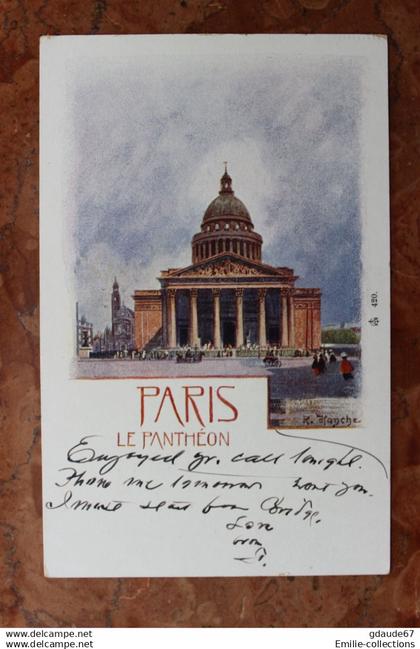 420.
PARIS
LE PANTHÉON
Enjoyed yr. call tonight.
Phone me tomorrow wont you.
I must start for Bridge.
Love
from
delcampe.net
gdaude67
Emilie-collections